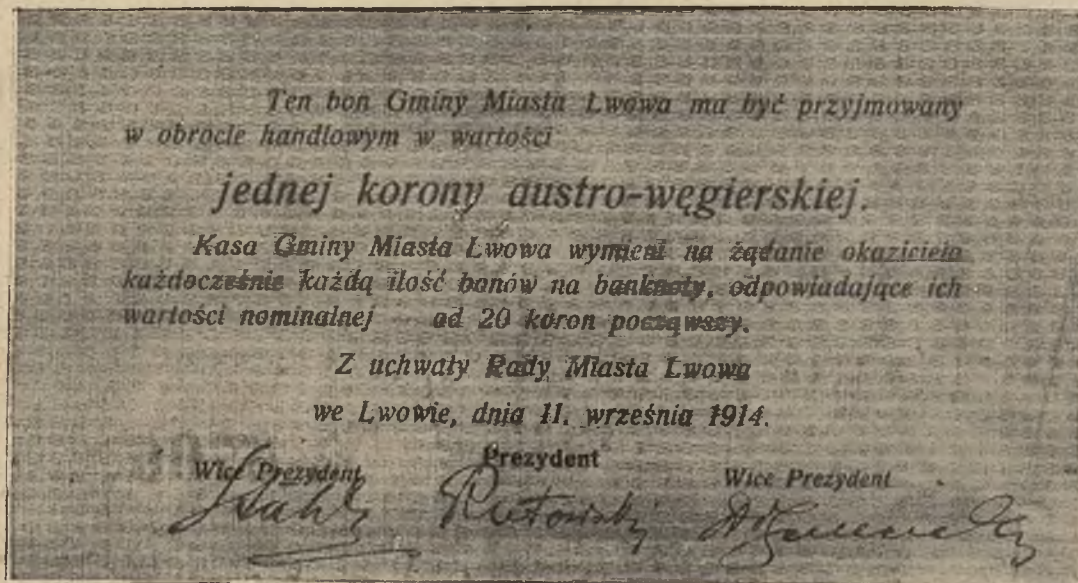 Ten bon Gminy Miasta Lwowa ma być przyjmowany
w obrocie handlowym w wartości
jednej korony austro-węgierskiej.
Kasa Gminy Miasta Lwowa wymieni na żądanie okaziciela
każdocześnie każdą ilość bonów na banknoty, odpowiadające ich
wartości nominalnej — od 20 koron począwszy.
Z uchwały Rady Miasta Lwowa
we Lwowie, dnia 11. września 1914.
Wice Prezydent Prezydent Wice Prezydent
Stahl Rutowski